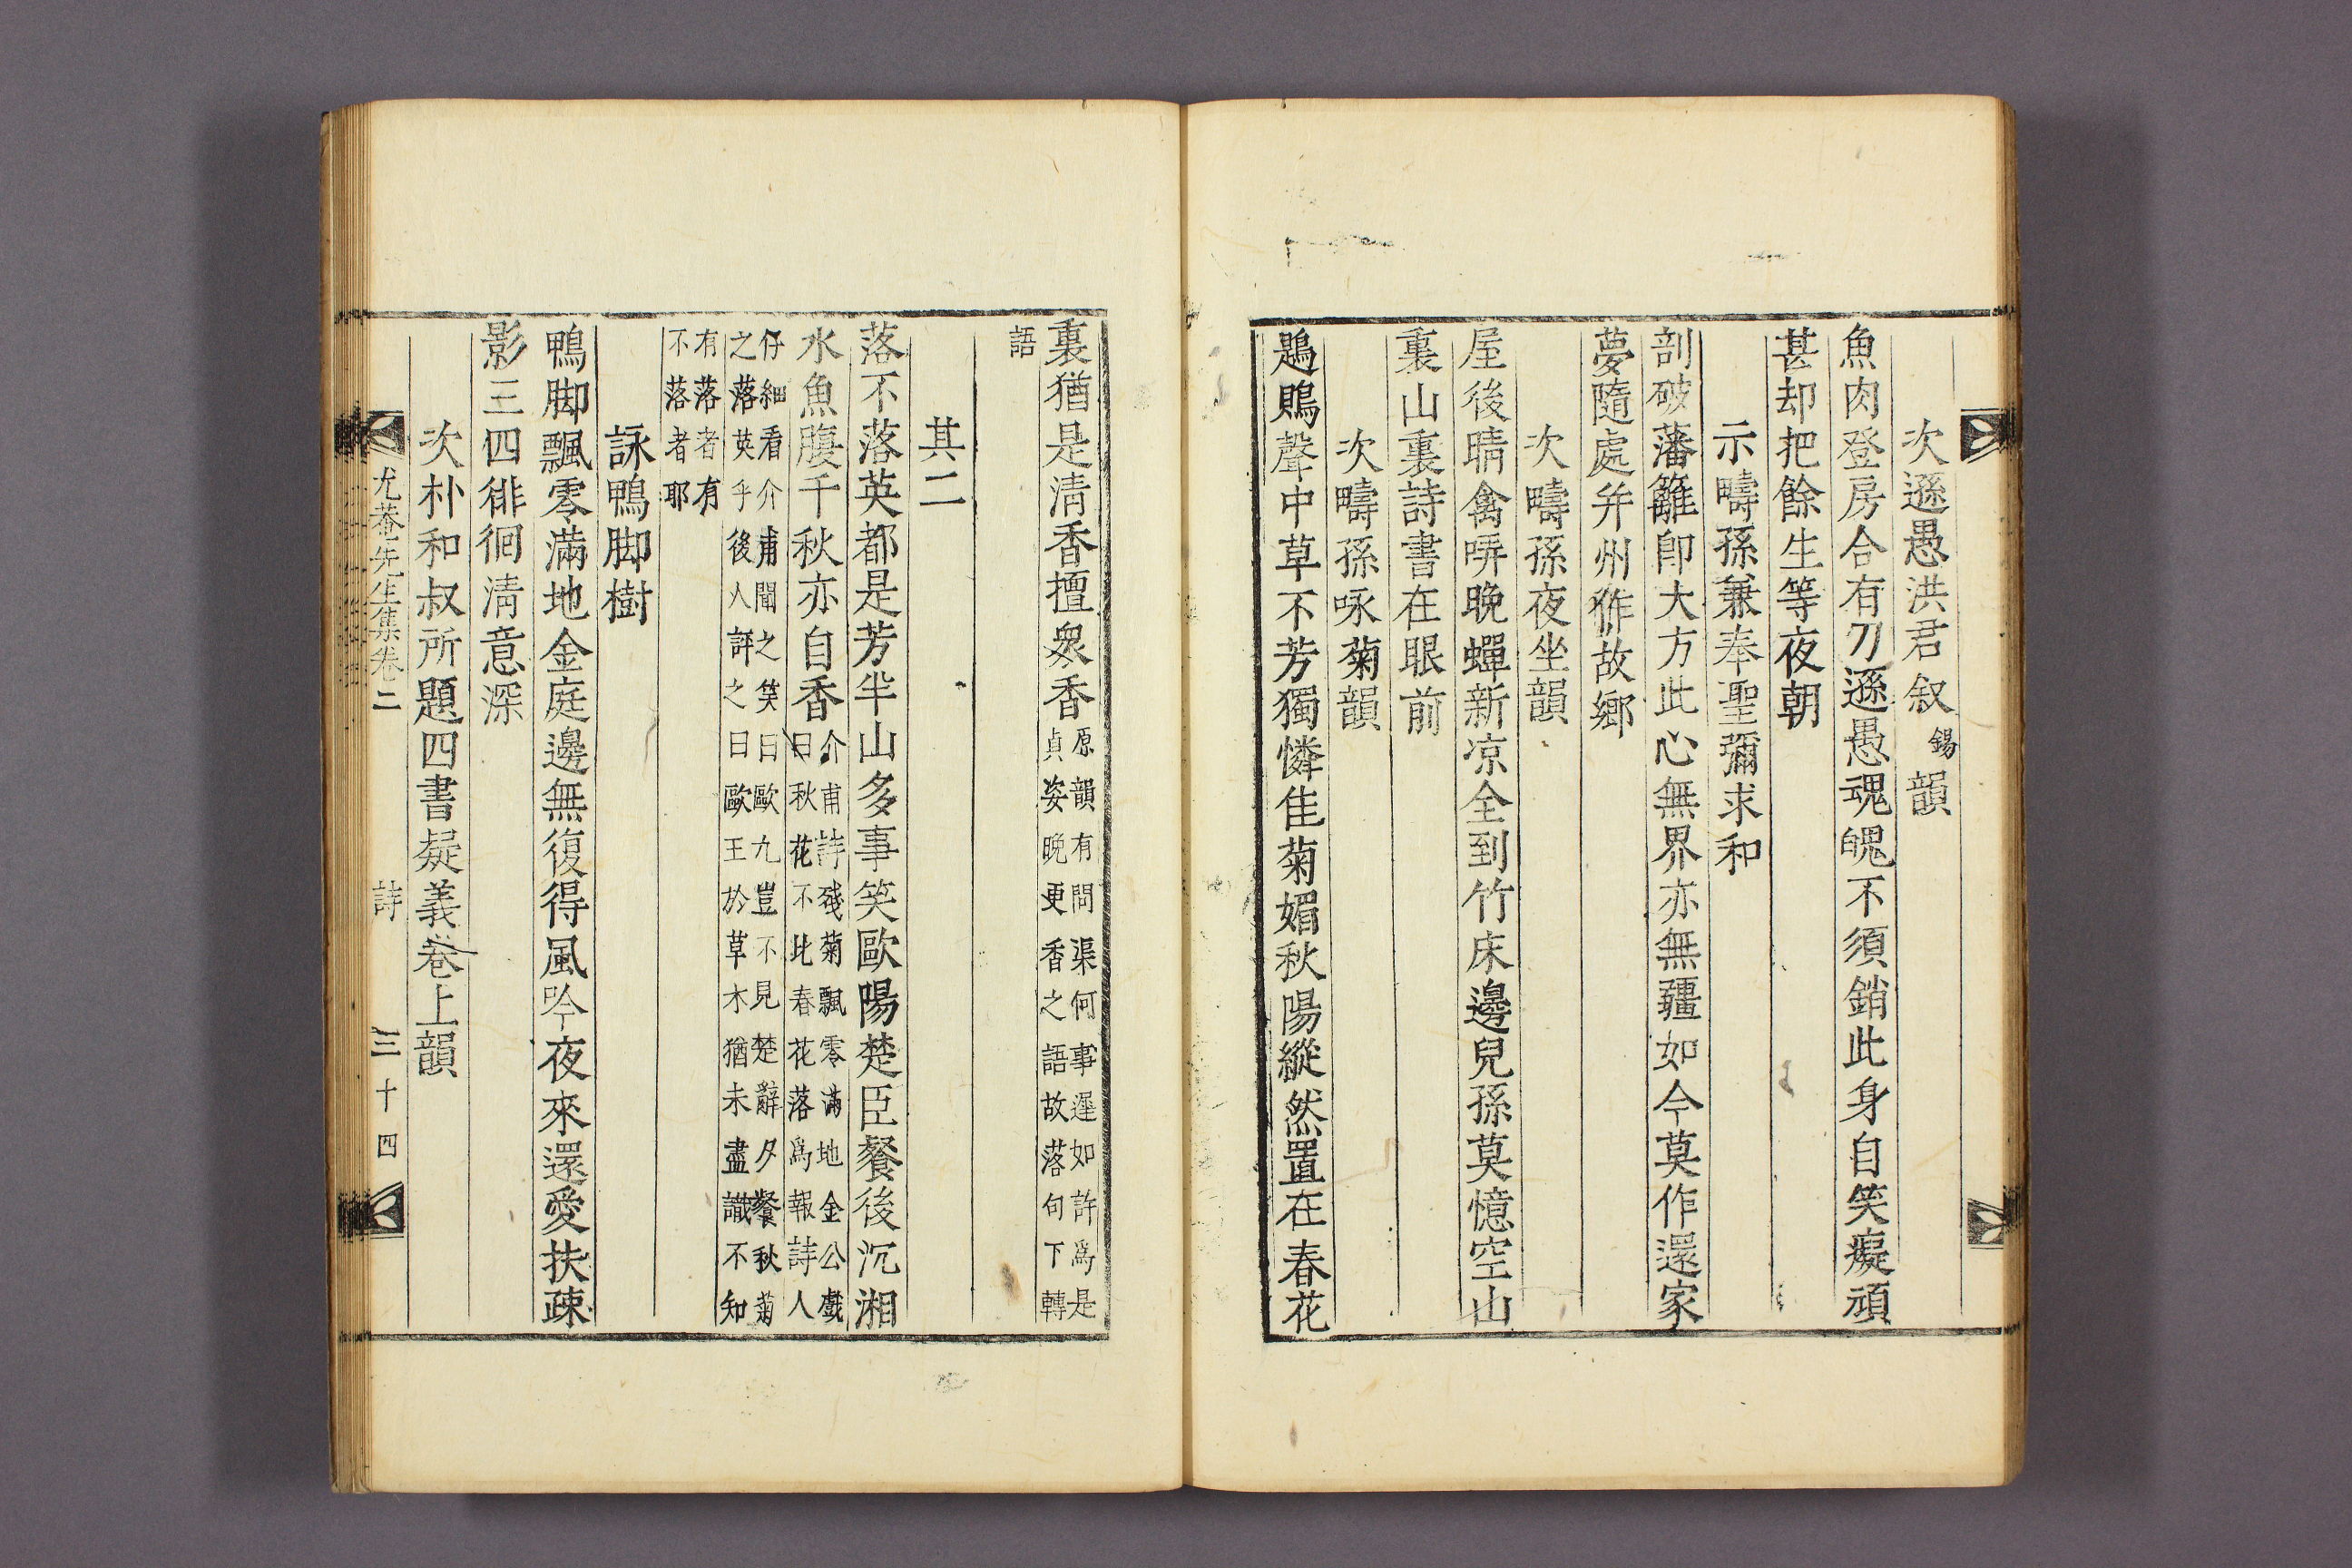 次遜愚洪君叙錫韻
魚肉登房合有刀遜愚魂魄不須銷此身自笑癡頑
甚却把餘生等夜朝
示疇孫兼奉聖彌求和
剖破藩籬卽大方此心無界亦無疆如今莫作還家
夢隨處幷州作故鄉
次疇孫夜坐韻
屋後晴禽哢晚蟬新凉全到竹床邊兒孫莫憶空山
裏山裏詩書在眼前
次疇孫咏菊韻
鶗鴂聲中草不芳獨憐佳菊媚秋陽縱然置在春花
裏猶是淸香擅衆香
原韻有問渠何事遲如許爲是
貞姿晚更香之語故落句下轉
語
其二
落不落英都是芳半山多事笑歐陽楚臣餐後沉湘
水魚腹千秋亦自香
介甫詩殘菊飄零滿地金公戲
曰秋花不比春花落爲報詩人
仔細看介甫聞之笑曰歐九豈不見楚辭夕餐秋菊
之落英乎後人評之曰歐王於草木猶未盡識不知
有落者有
不落者耶
詠鴨脚樹
鴨脚飄零滿地金庭邊無復得風吟夜來還愛扶疎
影三四徘徊淸意深
次朴和叔所題四書疑義卷上韻
尤菴先生集卷二
詩
三十四